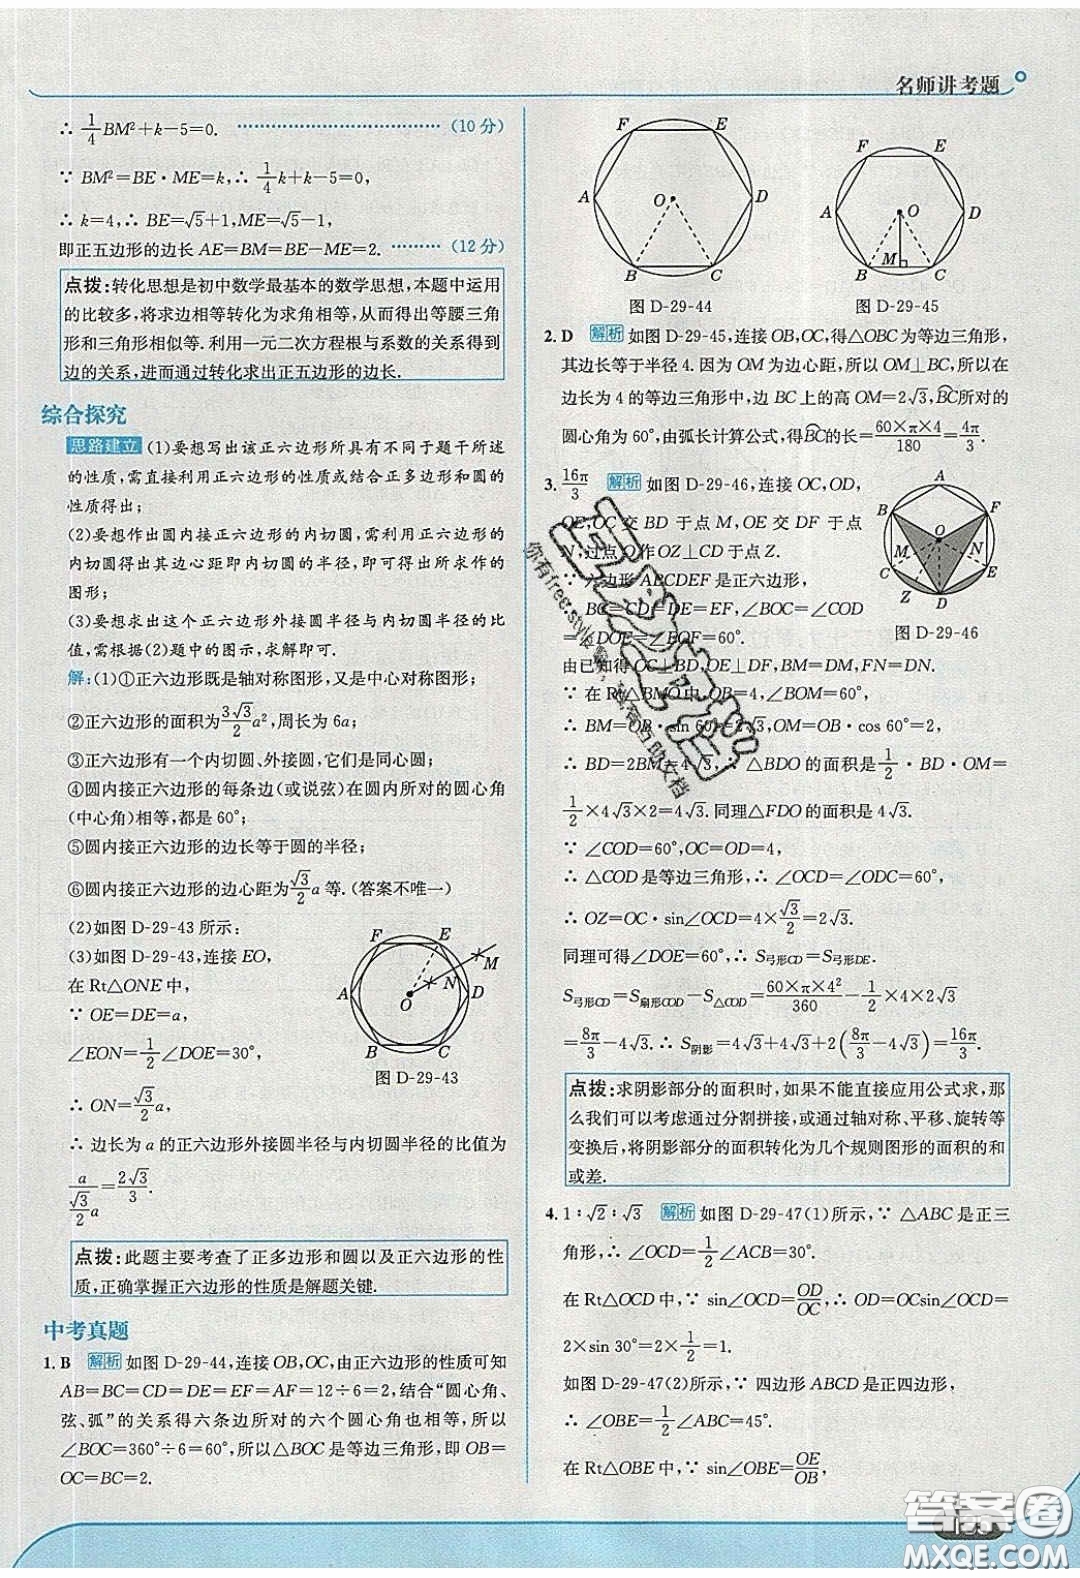 名师讲考题
∴ 1/4 BM²+k-5=0. ……………………（10 分）
∵ BM²=BE·ME=k,∴ 1/4 k+k-5=0,
∴ k=4,∴ BE=√5+1,ME=√5-1,
即正五边形的边长 AE=BM=BE-ME=2. ………（12 分）
点拨:转化思想是初中数学最基本的数学思想,本题中运用
的比较多,将求边相等转化为求角相等,从而得出等腰三角
形和三角形相似等.利用一元二次方程根与系数的关系得到
边的关系,进而通过转化求出正五边形的边长.
综合探究
思路建立 (1)要想写出该正六边形所具有不同于题干所述
的性质,需直接利用正六边形的性质或结合正多边形和圆的
性质得出;
(2)要想作出圆内接正六边形的内切圆,需利用圆内接正六边形的
内切圆得出其边心距即内切圆的半径,即可得出所求作的
图形;
(3)要想求出这个正六边形外接圆半径与内切圆半径的比
值,需根据(2)题中的图示,求解即可.
解:(1)①正六边形既是轴对称图形,又是中心对称图形;
②正六边形的面积为 3√3/2 a²,周长为 6a;
③正六边形有一个内切圆、外接圆,它们是同心圆;
④圆内接正六边形的每条边(或说弦)在圆内所对的圆心角
(中心角)相等,都是 60°;
⑤圆内接正六边形的边长等于圆的半径;
⑥圆内接正六边形的边心距为 √3/2 a 等.(答案不唯一)
(2)如图 D-29-43 所示:
(3)如图 D-29-43,连接 EO,
在 Rt△ONE 中,
∵ OE=DE=a,
∠EON=1/2∠DOE=30°,
∴ ON=√3/2 a,
F E M N A O D B C
图 D-29-43
∴ 边长为 a 的正六边形外接圆半径与内切圆半径的比值为
a/(√3/2 a)=2√3/3.
点拨:此题主要考查了正多边形和圆以及正六边形的性
质,正确掌握正六边形的性质是解题关键.
中考真题
1. B 解析 如图 D-29-44,连接 OB,OC,由正六边形的性质可知
AB=BC=CD=DE=EF=AF=12÷6=2,结合“圆心角、
弦、弧”的关系得六条边所对的六个圆心角也相等,所以
∠BOC=360°÷6=60°,所以△BOC 是等边三角形,即 OB=
OC=BC=2.
F E A O D B C
图 D-29-44
F E A O D B M C
图 D-29-45
2. D 解析 如图 D-29-45,连接 OB,OC,得△OBC 为等边三角形,
其边长等于半径 4.因为 OM 为边心距,所以 OM⊥BC,所以在
边长为 4 的等边三角形中,边 BC 上的高 OM=2√3,BC所对的
圆心角为 60°,由弧长计算公式,得BC的长=60×π×4/180=4π/3.
3. 16π/3 解析 如图 D-29-46,连接 OC,OD,
OE,OC 交 BD 于点 M,OE 交 DF 于点
N,过点 O 作 OZ⊥CD 于点 Z.
∵ 六边形 ABCDEF 是正六边形,
∴ BC=CD=DE=EF,∠BOC=∠COD
=∠DOE=∠EOF=60°.
A B F O M N C E Z D
图 D-29-46
由已知得 OC⊥BD,OE⊥DF,BM=DM,FN=DN.
∵ 在 Rt△BMO 中,OB=4,∠BOM=60°,
∴ BM=OB·sin 60°=2√3,OM=OB·cos 60°=2,
∴ BD=2BM=4√3,∴ △BDO 的面积是 1/2·BD·OM=
1/2×4√3×2=4√3.同理△FDO 的面积是 4√3.
∵ ∠COD=60°,OC=OD=4,
∴ △COD 是等边三角形,∴ ∠OCD=∠ODC=60°,
∴ OZ=OC·sin∠OCD=4×√3/2=2√3.
同理可得∠DOE=60°,∴ S弓形CD=S弓形DE.
S弓形CD=S扇形COD-S△COD=60×π×4²/360-1/2×4×2√3
=8π/3-4√3.∴ S阴影=4√3+4√3+2(8π/3-4√3)=16π/3.
点拨:求阴影部分的面积时,如果不能直接应用公式求,那
么我们可以考虑通过分割拼接,或通过轴对称、平移、旋转等
变换后,将阴影部分的面积转化为几个规则图形的面积的和
或差.
4. 1∶√2∶√3 解析 如图 D-29-47(1)所示,∵ △ABC 是正三
角形,∴ ∠OCD=1/2∠ACB=30°.
在 Rt△OCD 中,∵ sin∠OCD=OD/OC,∴ OD=OCsin∠OCD=
2×sin 30°=2×1/2=1.
如图 D-29-47(2)所示,∵ 四边形 ABCD 是正四边形,
∴ ∠OBE=1/2∠ABC=45°.
在 Rt△OBE 中,∵ sin∠OBE=OE/OB,
答案圈
MXQE.COM